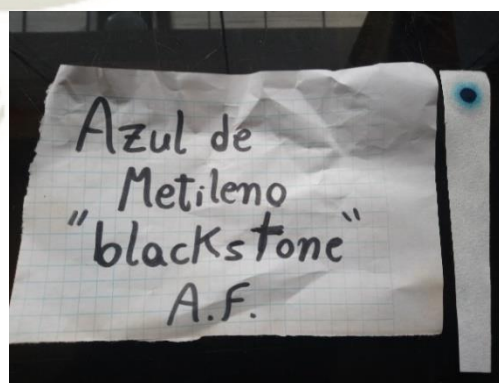 Azul de
Metileno
"blackstone"
A.F.